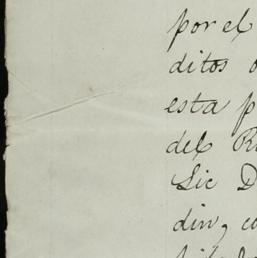 por el
ditos
esta p
del R
Lic D
din, c